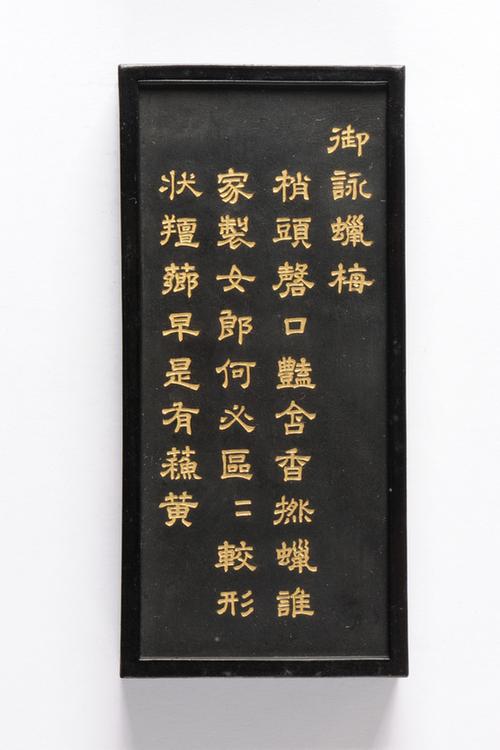 御詠蠟梅
梢頭磬口豔含香撚蠟誰
家製女郎何必區〻較形
状羶薌早是有蘓黃